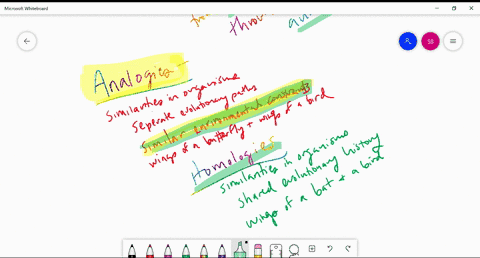 Microsoft Whiteboard
SB
Analogies
similarities in organisms
seperate evolutionary paths
similar environmental constraints
wings of a butterfly + wings of a bird
Homologies
similarities in organisms
shared evolutionary history
wings of a bat + a bird